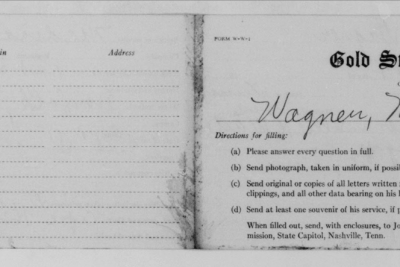 in Address
Gold
Wagner,
Directions for filling:
(a) Please answer every question in full.
(b) Send photograph, taken in uniform, if
(c) Send original or copies of all letters written
clippings, and all other data bearing on his
(d) Send at least one souvenir of his service, if
When filled out, send, with enclosures, to
mission, State Capitol, Nashville, Tenn.